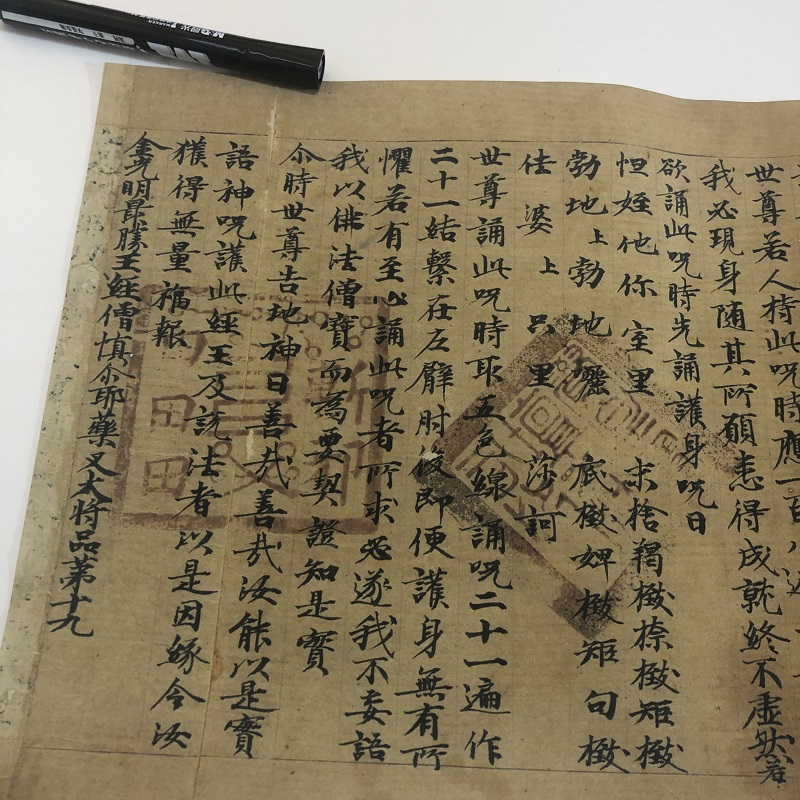 世尊若人持此呪時應一百八遍
我必現身随其所願悉得成就終不虛然若
欲誦此呪時先誦護身呪曰
怛姪他你室里 末捨羯㨖㮈㨖矩㨖
勃地上勃地囇 底㨖婢㨖矩句㨖
佉婆上只里 莎訶
世尊誦此呪時取五色線誦呪二十一遍作
二十一結繫在左臂肘後即便護身無有所
懼若有至心誦此呪者所求必遂我不妄語
我以佛法僧寶而為要契證知是實
尒時世尊告地神曰善㢤善㢤汝能以是實
語神呪護此經王及說法者以是因緣令汝
獲得無量福報
金光明最勝王經僧慎尒耶藥叉大将品第十九